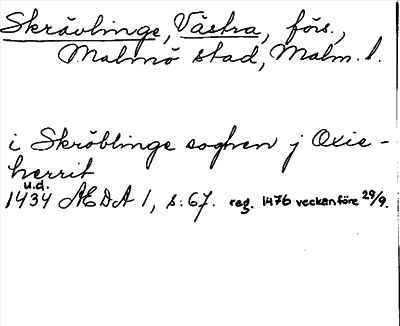 Skrävlinge, Västra, förs.,
Malmö stad, Malm. l.
i Skröblinge soghen j Oxie-
herrit
u.d.
1434 ÆDA 1, s. 67. reg. 1476 veckan före 29/9.